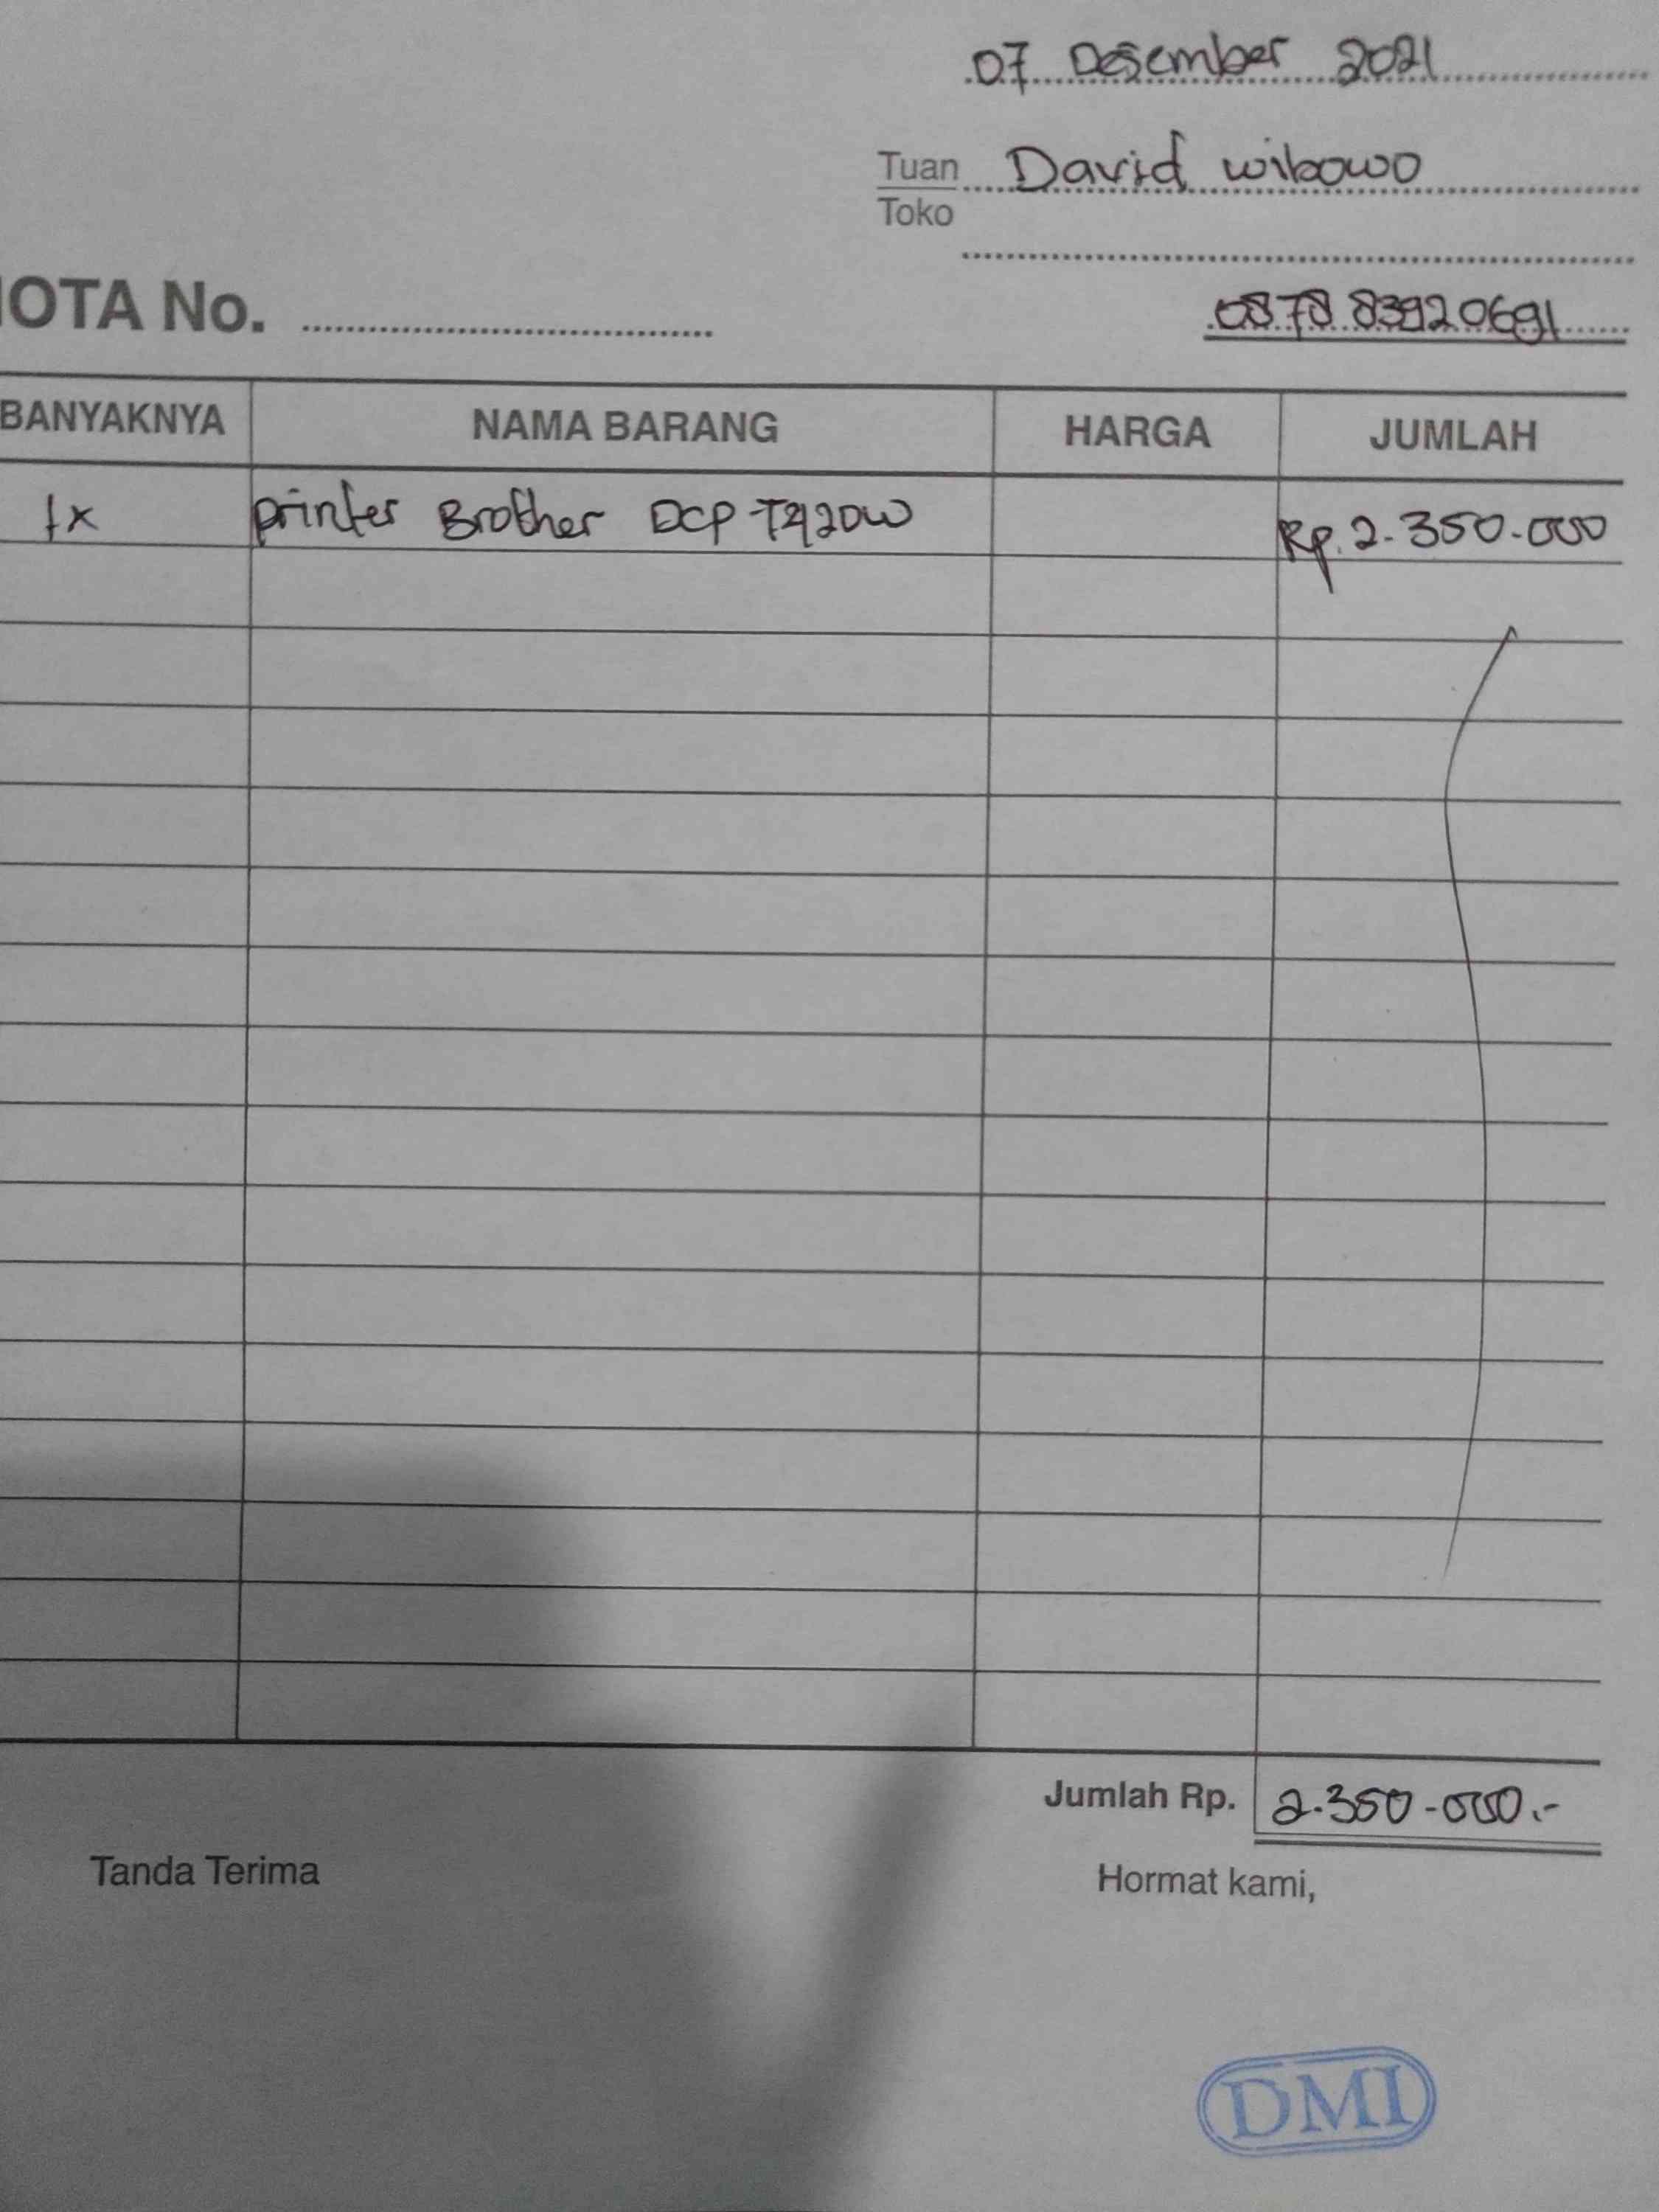 07 Desember 2021
Tuan David wibowo
Toko
OTA No.
0878 83920691
BANYAKNYA NAMA BARANG HARGA JUMLAH
1x printer Brother DCP-T420W Rp. 2.350.000
Jumlah Rp. 2.350.000.-
Tanda Terima Hormat kami,
DMI